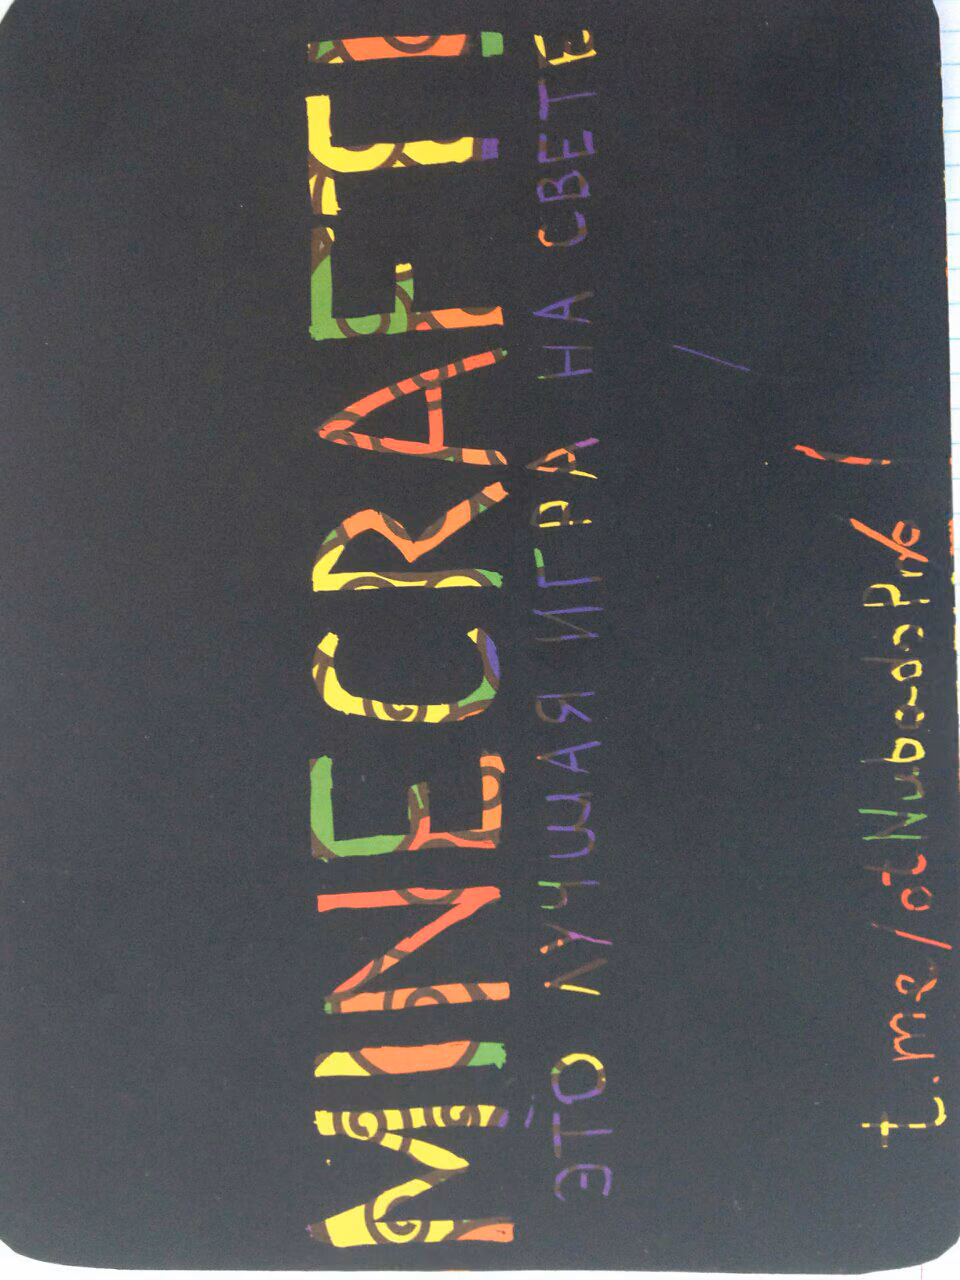 MINECRAFT!
ЭТО ЛУЧШАЯ ИГРА НА СВЕТЕ
t.me/otNuba-do